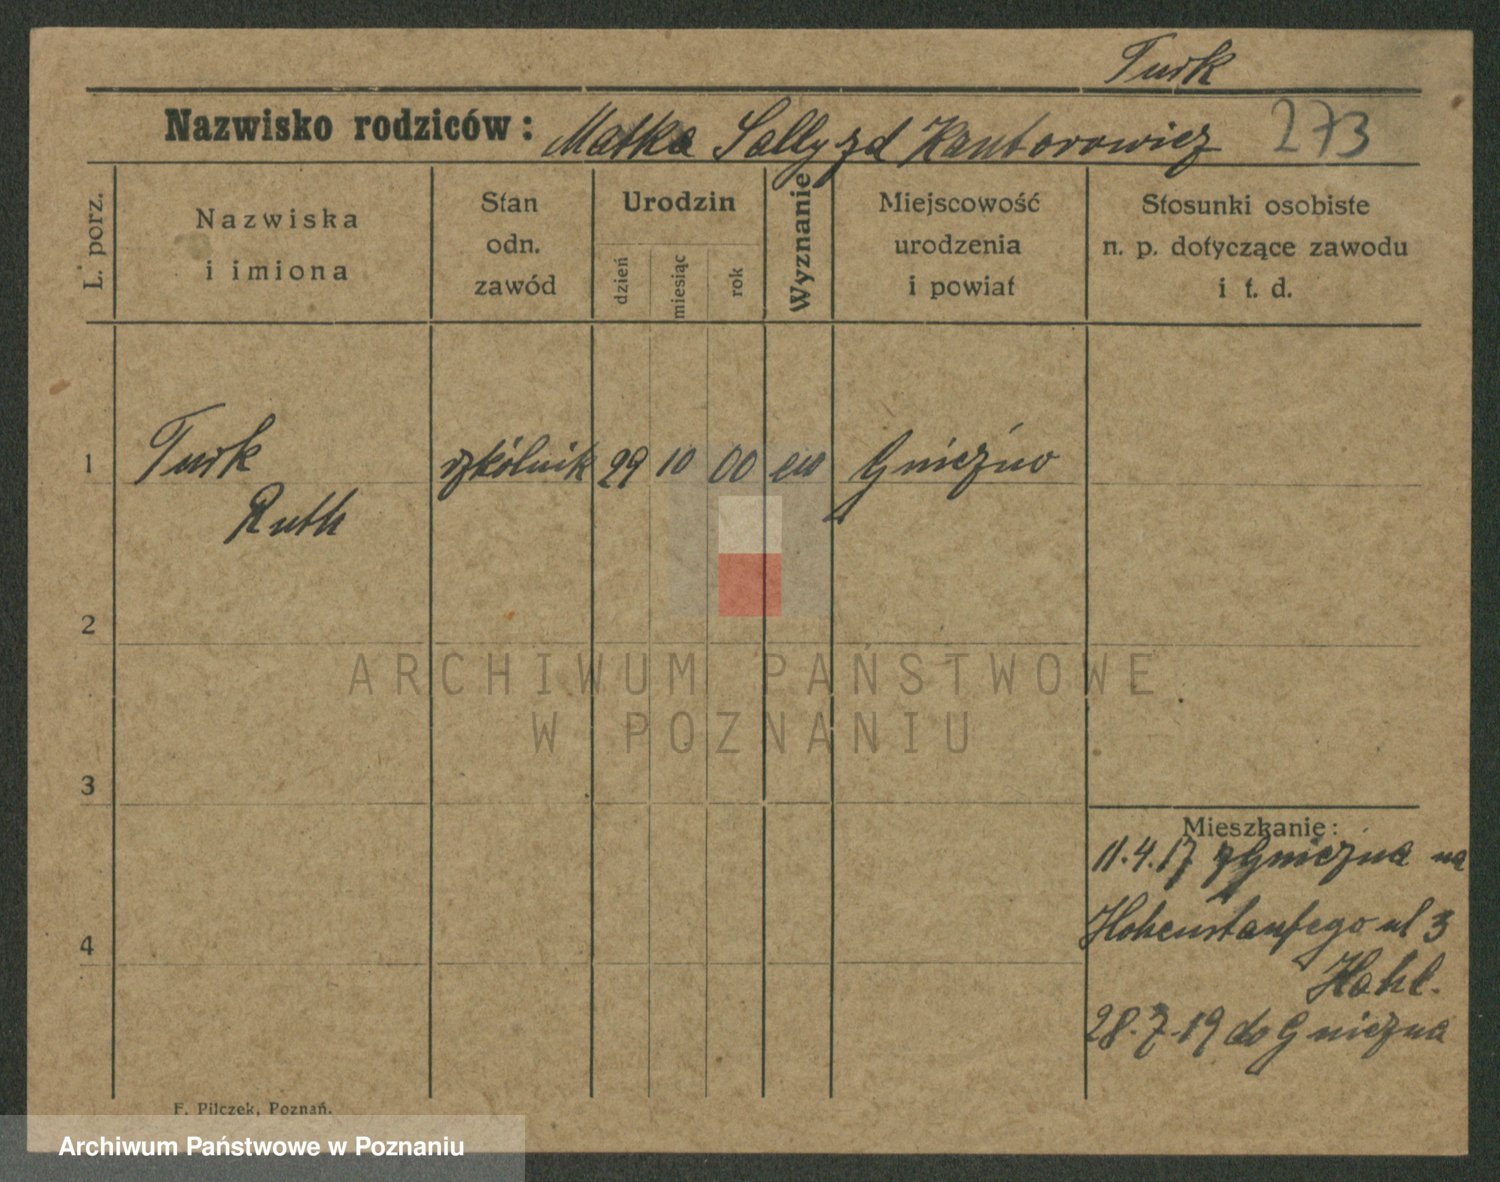 Turk
Nazwisko rodziców: Matka Sally zd Kantorowicz 273
L. porz.
Nazwiska
i imiona
Stan
odn.
zawód
Urodzin
dzień
miesiąc
rok
Wyznanie
Miejscowość
urodzenia
i powiat
Stosunki osobiste
n. p. dotyczące zawodu
i t. d.
1 Turk szkólnik 29 10 00 ew Gniezno
Ruth
2
ARCHIWUM PAŃSTWOWE
W POZNANIU
3
Mieszkanie:
11.4.17 z Gniezna na
Hohenstaufego ul 3
4
28.7.19 do Gniezna
F. Pilczek, Poznań.
Archiwum Państwowe w Poznaniu